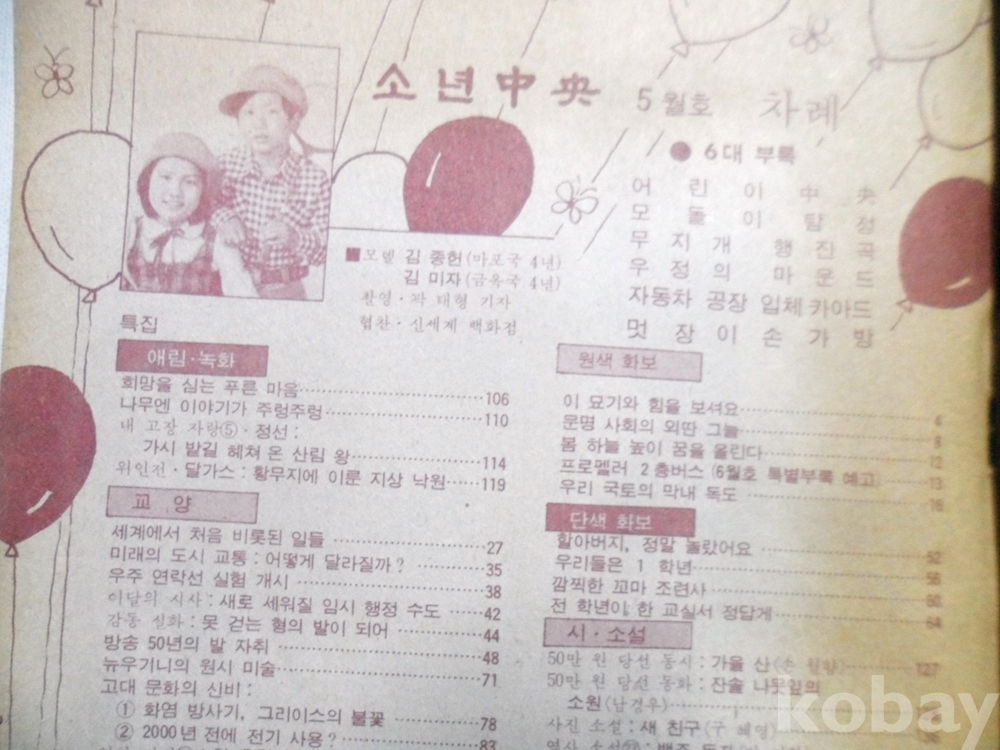 소년中央 5월호 차례
● 6대 부록
어린이 中央
모돌이 탐정
무지개 행진곡
우정의 마운드
자동차 공장 입체카아드
멋장이 손가방
■모델 김종헌(마포국 4년)
김미자(금옥국 4년)
촬영·곽태형 기자
협찬·신세계 백화점
특집
애림·녹화
희망을 심는 푸른 마음 106
나무엔 이야기가 주렁주렁 110
내 고장 자랑⑤·정선:
가시 밭길 헤쳐 온 산림 왕 114
위인전·달가스: 황무지에 이룬 지상 낙원 119
교양
세계에서 처음 비롯된 일들 27
미래의 도시 교통: 어떻게 달라질까? 35
우주 연락선 실험 개시 38
이달의 시사: 새로 세워질 임시 행정 수도 42
감동 실화: 못 걷는 형의 발이 되어 44
방송 50년의 발 자취 48
뉴우기니의 원시 미술 71
고대 문화의 신비:
① 화염 방사기, 그리이스의 불꽃 78
② 2000년 전에 전기 사용? 83
원색 화보
이 묘기와 힘을 보셔요 4
문명 사회의 외딴 그늘 8
봄 하늘 높이 꿈을 올린다 12
프로펠러 2층버스 (6월호 특별부록 예고) 13
우리 국토의 막내 독도 16
단색 화보
할아버지, 정말 놀랐어요 52
우리들은 1 학년 56
깜찍한 꼬마 조련사 60
전 학년이 한 교실서 정답게 64
시·소설
50만 원 당선 동시: 가을 산 127
50만 원 당선 동화: 잔솔 나뭇잎의
소원(남경우)
사진 소설: 새 친구(구혜영)
kobay